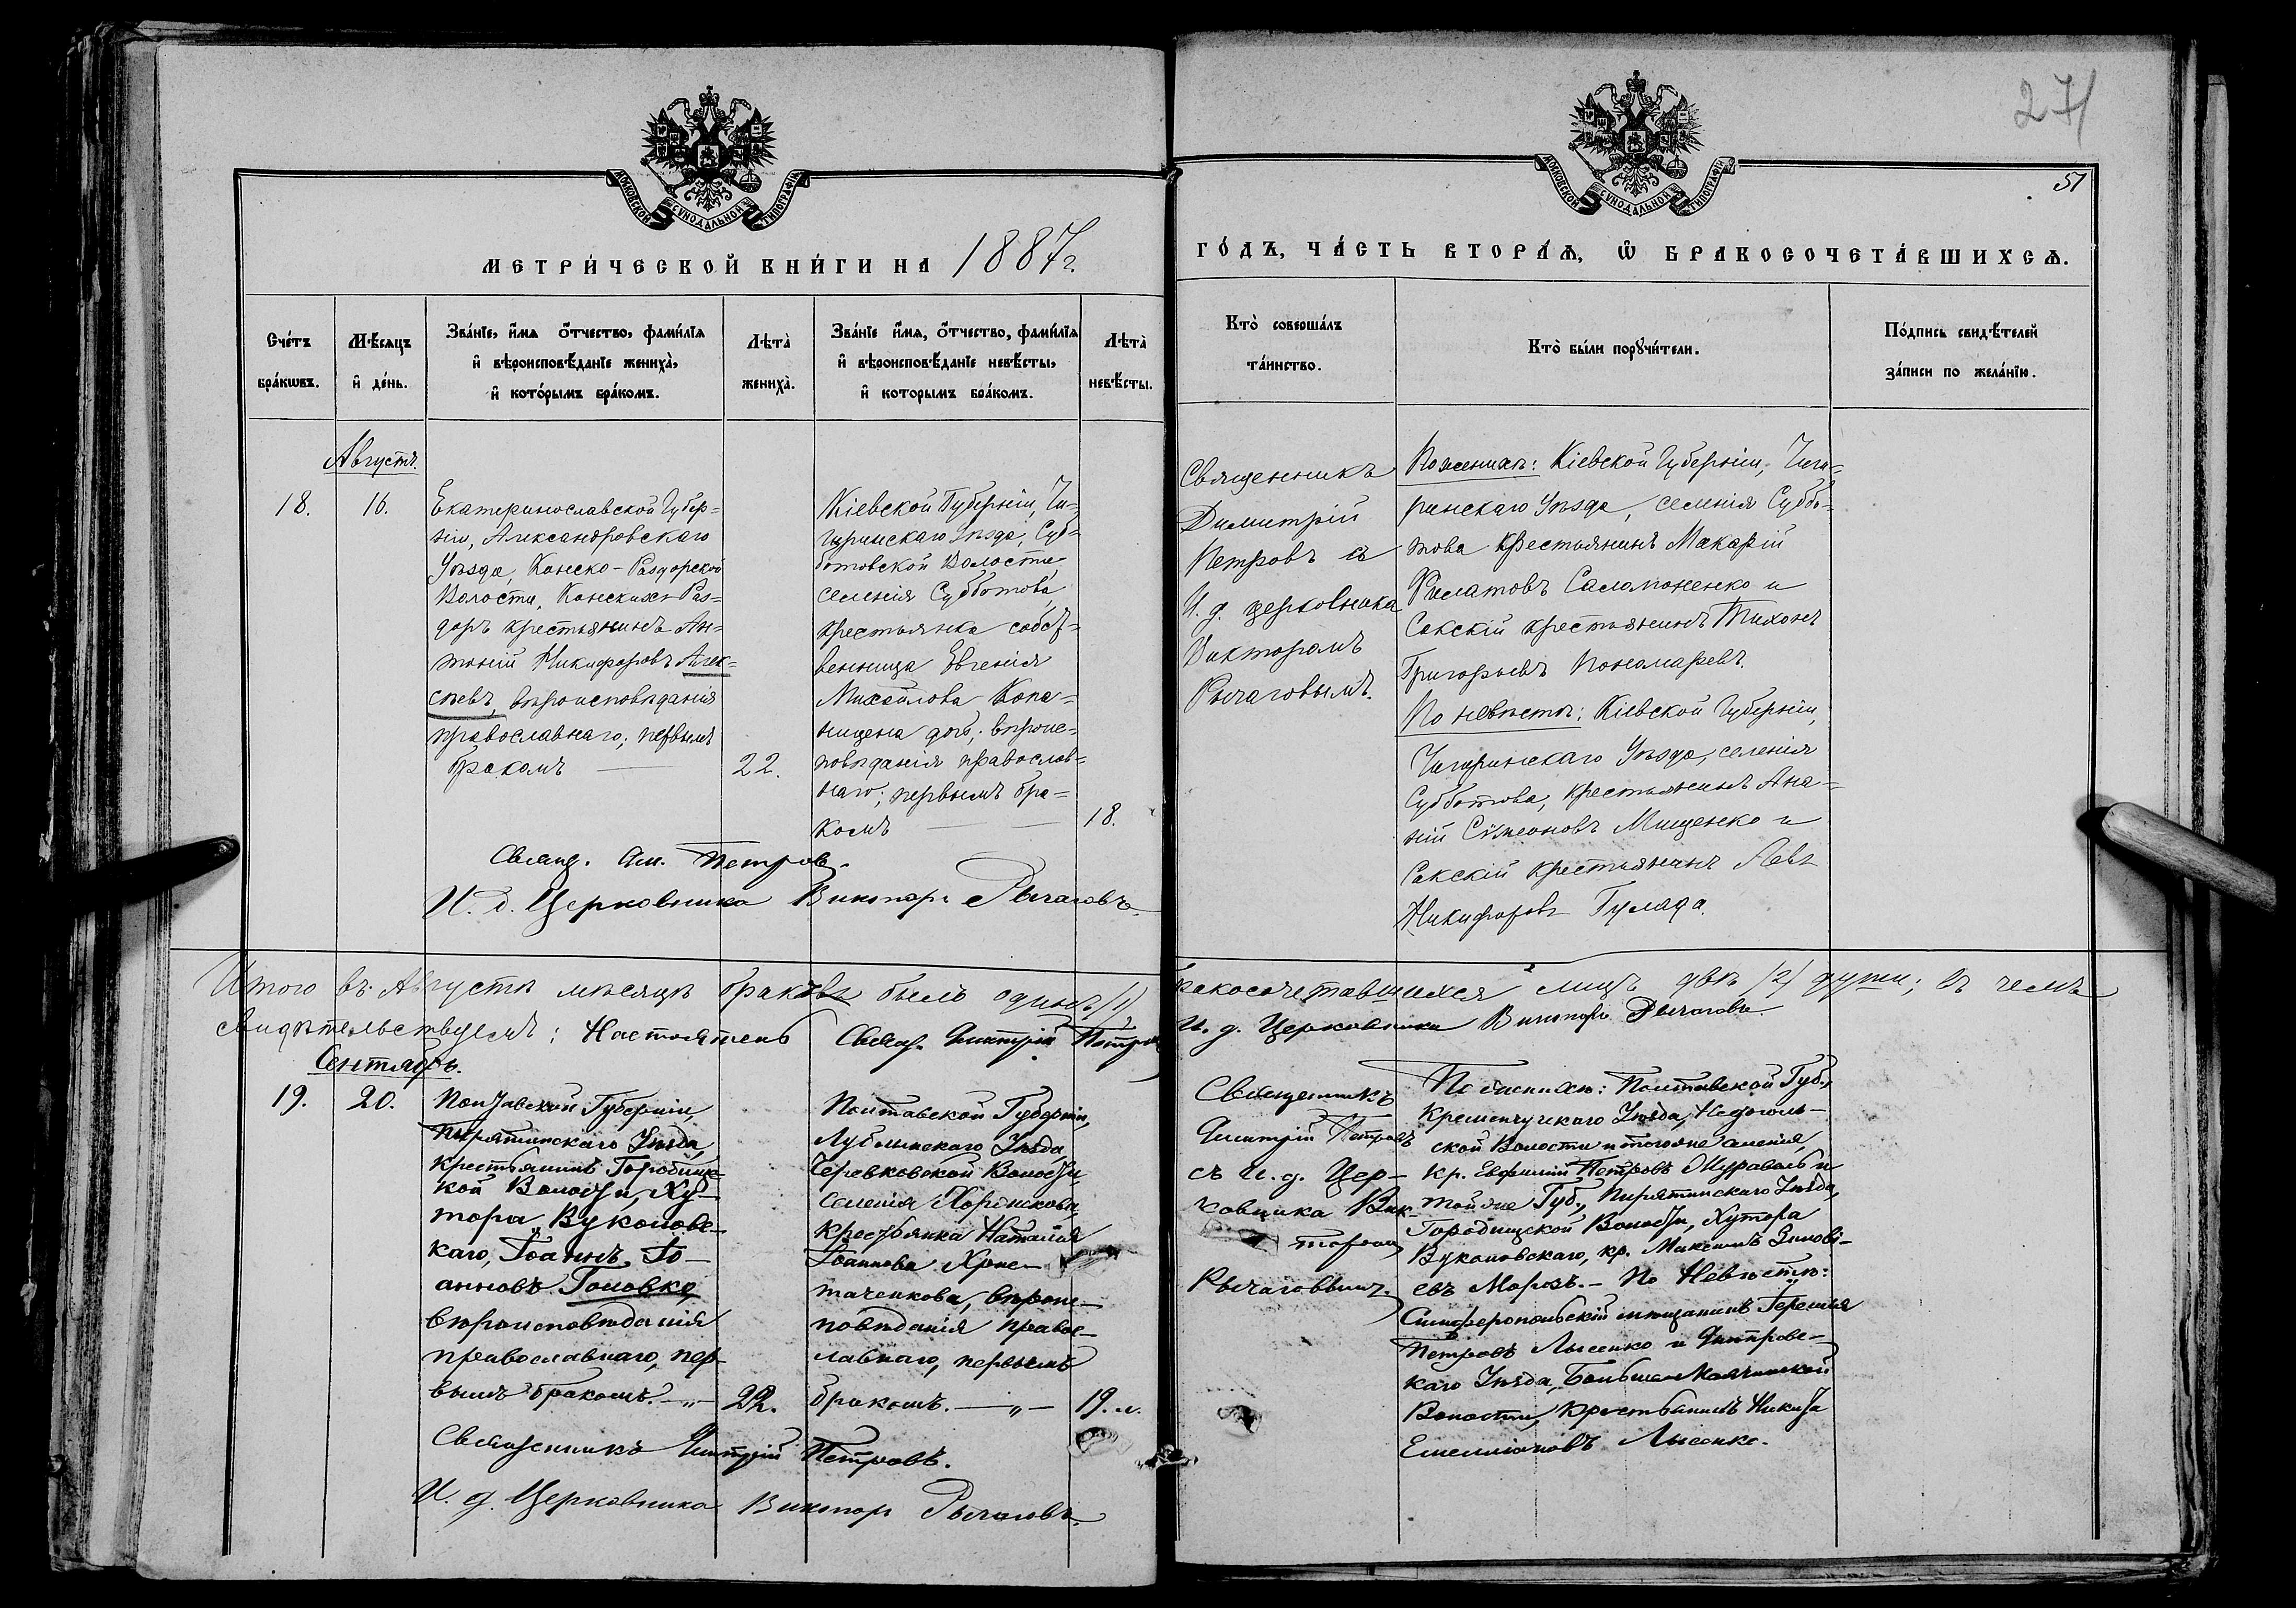 271
51
МОСКОВСКОЙ СѴНОДАЛЬНОЙ ТИПОГРАФІИ
МОСКОВСКОЙ СѴНОДАЛЬНОЙ ТИПОГРАФІИ
МЕТРИ́ЧЕСКОЙ КНИ́ГИ НА 1887 г.
ГО́ДЪ, ЧА́СТЬ ВТОРА́Ѧ, Ѽ БРАКОСОЧЕТА́ВШИХСѦ.
Сче́тъ
бра́кѡвъ.
Мѣ́сяцъ
и де́нь.
Зва́нїе, и҆́мя о҆́тчество, фами́лїя
и҆ вѣроисповѣ́данїе жениха̀,
и҆ кото́рымъ бра́комъ.
Лѣта̀
жениха̀.
Зва́нїе и҆́мя, о҆́тчество, фами́лїя
и҆ вѣроисповѣ́данїе невѣ́сты,
и҆ которымъ бра́комъ.
Лѣта̀
невѣ́сты.
Кто̀ соверша́лъ
та́инство.
Кто̀ бы́ли порꙋчи́тели.
По́дпись свидѣ́телей
за́писи по жела́нїю.
Августъ.
18.
16.
Екатеринославской Губер=
ніи, Александровскаго
Уѣзда, Конско-Раздорской
Волости, Конскихъ Раз=
доръ крестьянинъ Ан=
тоній Никифоровъ Алек=
сѣевъ, вѣроисповѣданія
православнаго; первымъ
бракомъ
22.
Кіевской Губерніи, Чи=
гиринскаго Уѣзда, Суб=
ботовской Волости
селенія Субботова,
крестьянка собст=
венница Евгенія
Михайлова Копа=
ницена дочь; вѣроис=
повѣданія православ=
наго; первымъ бра=
комъ
18.
Священникъ
Димитрій
Петровъ съ
И. д. церковника
Викторомъ
Рычаговымъ.
По женихѣ: Кіевской Губерніи, Чиги=
ринскаго Уѣзда, селенія Суббо=
това крестьянинъ Макарій
Филатовъ Саламоненко и
Сакскій крестьянинъ Тихонъ
Григорьевъ Пономаревъ.
По невѣстѣ: Кіевской Губерніи,
Чигиринскаго Уѣзда, селенія
Субботова, крестьянинъ Ана=
ній Сѵмеоновъ Мищенко и
Сакскій крестьянинъ Левъ
Никифоровъ Гуляда.
Свящ. Дм. Петровъ.
И. д. Церковника Викторъ Рычаговъ.
Итого въ Августѣ мѣсяцѣ браковъ былъ одинъ /1/, бракосочетавшихся лицъ двѣ /2/ души; въ чемъ
свидѣтельствуемъ: Настоятель Свящ. Димитрій Петровъ
И. д. Церковника Викторъ Рычаговъ.
Сентябрь.
19.
20.
Полтавской Губерніи,
Пирятинскаго Уѣзда,
крестьянинъ Городищс
кой Волости, Ху-
тора Вуколовс-
каго, Іоаннъ Іо-
анновъ Головко,
вѣроисповѣданія
православнаго, пер-
вымъ бракомъ. - „ -
22.
Полтавской Губерніи,
Лубенскаго Уѣзда,
Черевковской Волости,
селенія
крестьянка Наталія
Іоаннова Хрис-
таченкова, вѣроис-
повѣданія правос-
лавнаго, первымъ
бракомъ. - „ -
19. л.
Священникъ
Димитрій Петровъ
съ И. д. Цер-
ковника Вик-
торомъ
Рычаговымъ.
По женихѣ: Полтавской Губ.,
Кременчугскаго Уѣзда,
ской Волости и того же селенія,
кр. Евфимій Петровъ Муравль и
той же Губ., Пирятинскаго Уѣзда,
Городищской Волости, Хутора
Вуколовскаго, кр. Максимъ Зинові-
евъ Морозъ. - По Невѣстѣ:
Симферопольскій мѣщанинъ Геремія
Петровъ Лысенко и Днѣпровс-
каго Уѣзда, Больше-Маячинской
Волости, Крестьянинъ Никита
Емеліановъ Лысенко.
Священникъ Димитрій Петровъ.
И. д. Церковника Викторъ Рычаговъ.